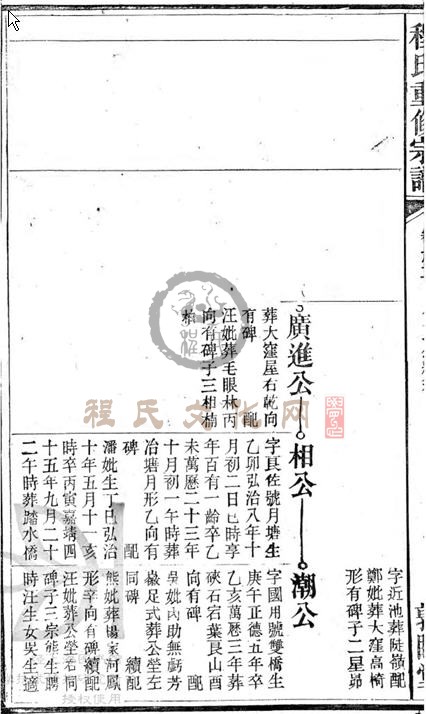 程氏重修宗譜
字近池葬陡嶺配
鄭妣葬大窪高椅
形有碑子二星昴
廣進公
相公
潮公
葬大窪屋右乾向
有碑 配
汪妣葬毛眼林丙
向有碑子三相楠
柏
字良佐號月塘生
乙卯弘治八年十
月初二日巳時享
年百有一齡卒乙
未萬曆二十三年
十月初一午時葬
冶塘月形乙向有
碑 配
潘妣生丁巳弘治
十年五月十 亥
時卒丙寅嘉靖四
十五年九月二十
二午時葬踏水僑
字國用號雙橋生
庚午正德五年卒
乙亥萬曆三年葬
硤石宕葉艮山酉
向有碑 配
吳妣內助無虧芳
徽足式葬公塋左
同碑 續配
熊妣葬楊家河鳳
形辛向有碑續配
汪妣葬公塋右同
碑子三宗熊生騁
時汪生女吳生適
程氏文化网
授权使用